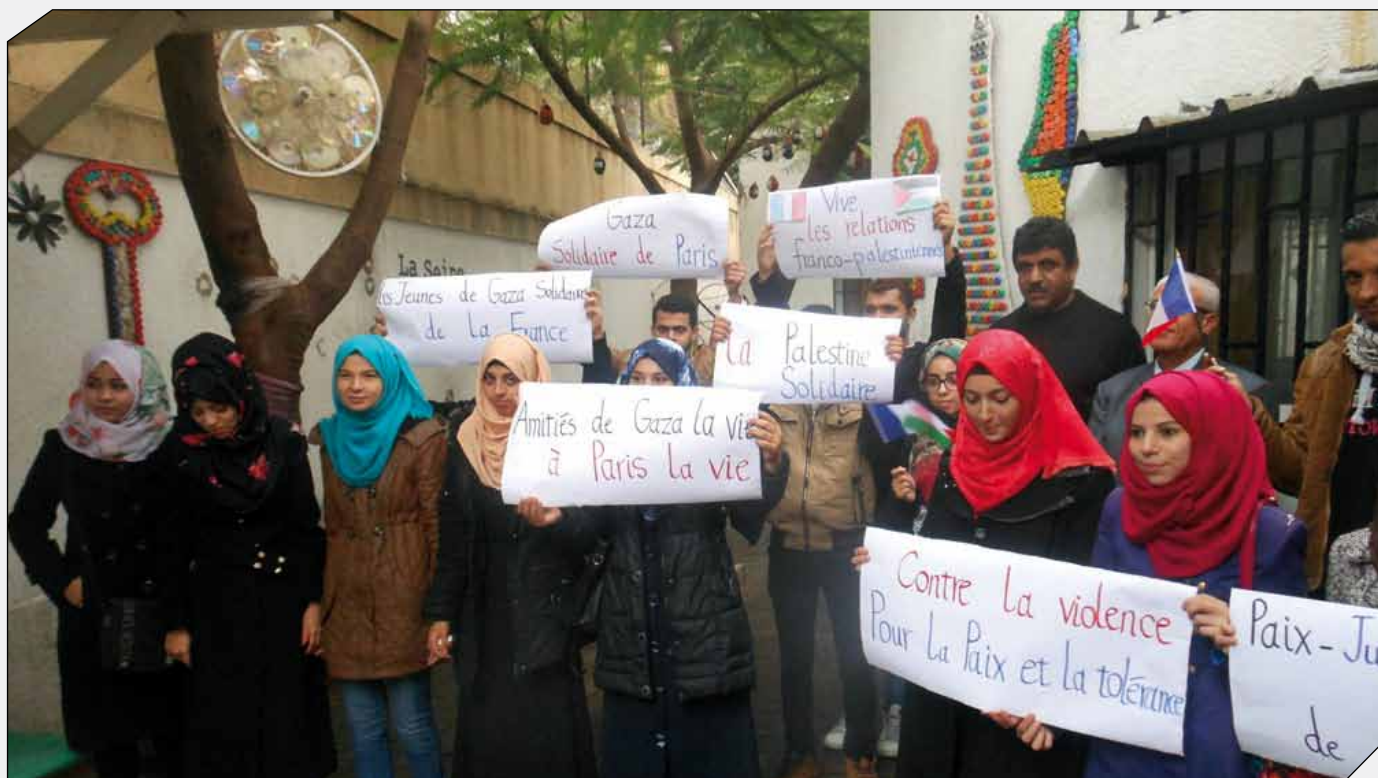 Gaza
Solidaire de Paris
Vive
les relations
franco-palestiniennes
La Seine
Les Jeunes de Gaza Solidaires
de La France
La Palestine
Solidaire
Amitiés de Gaza la vie
à Paris la vie
Contre la violence
Pour la Paix et la tolérance
Paix - Ju
de